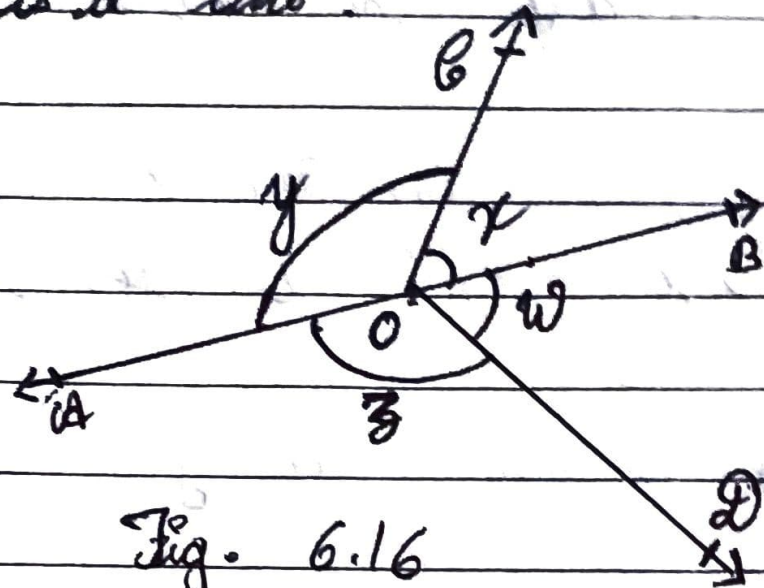 C
y
x
B
O
w
A
z
D
Fig. 6.16